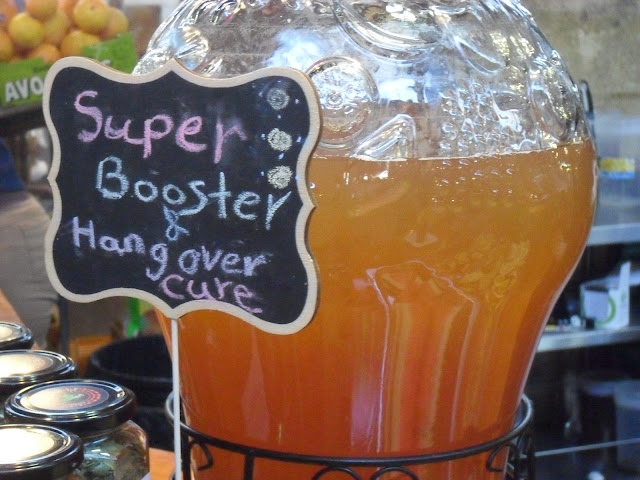 AVO
Super
Booster
&
Hangover
cure